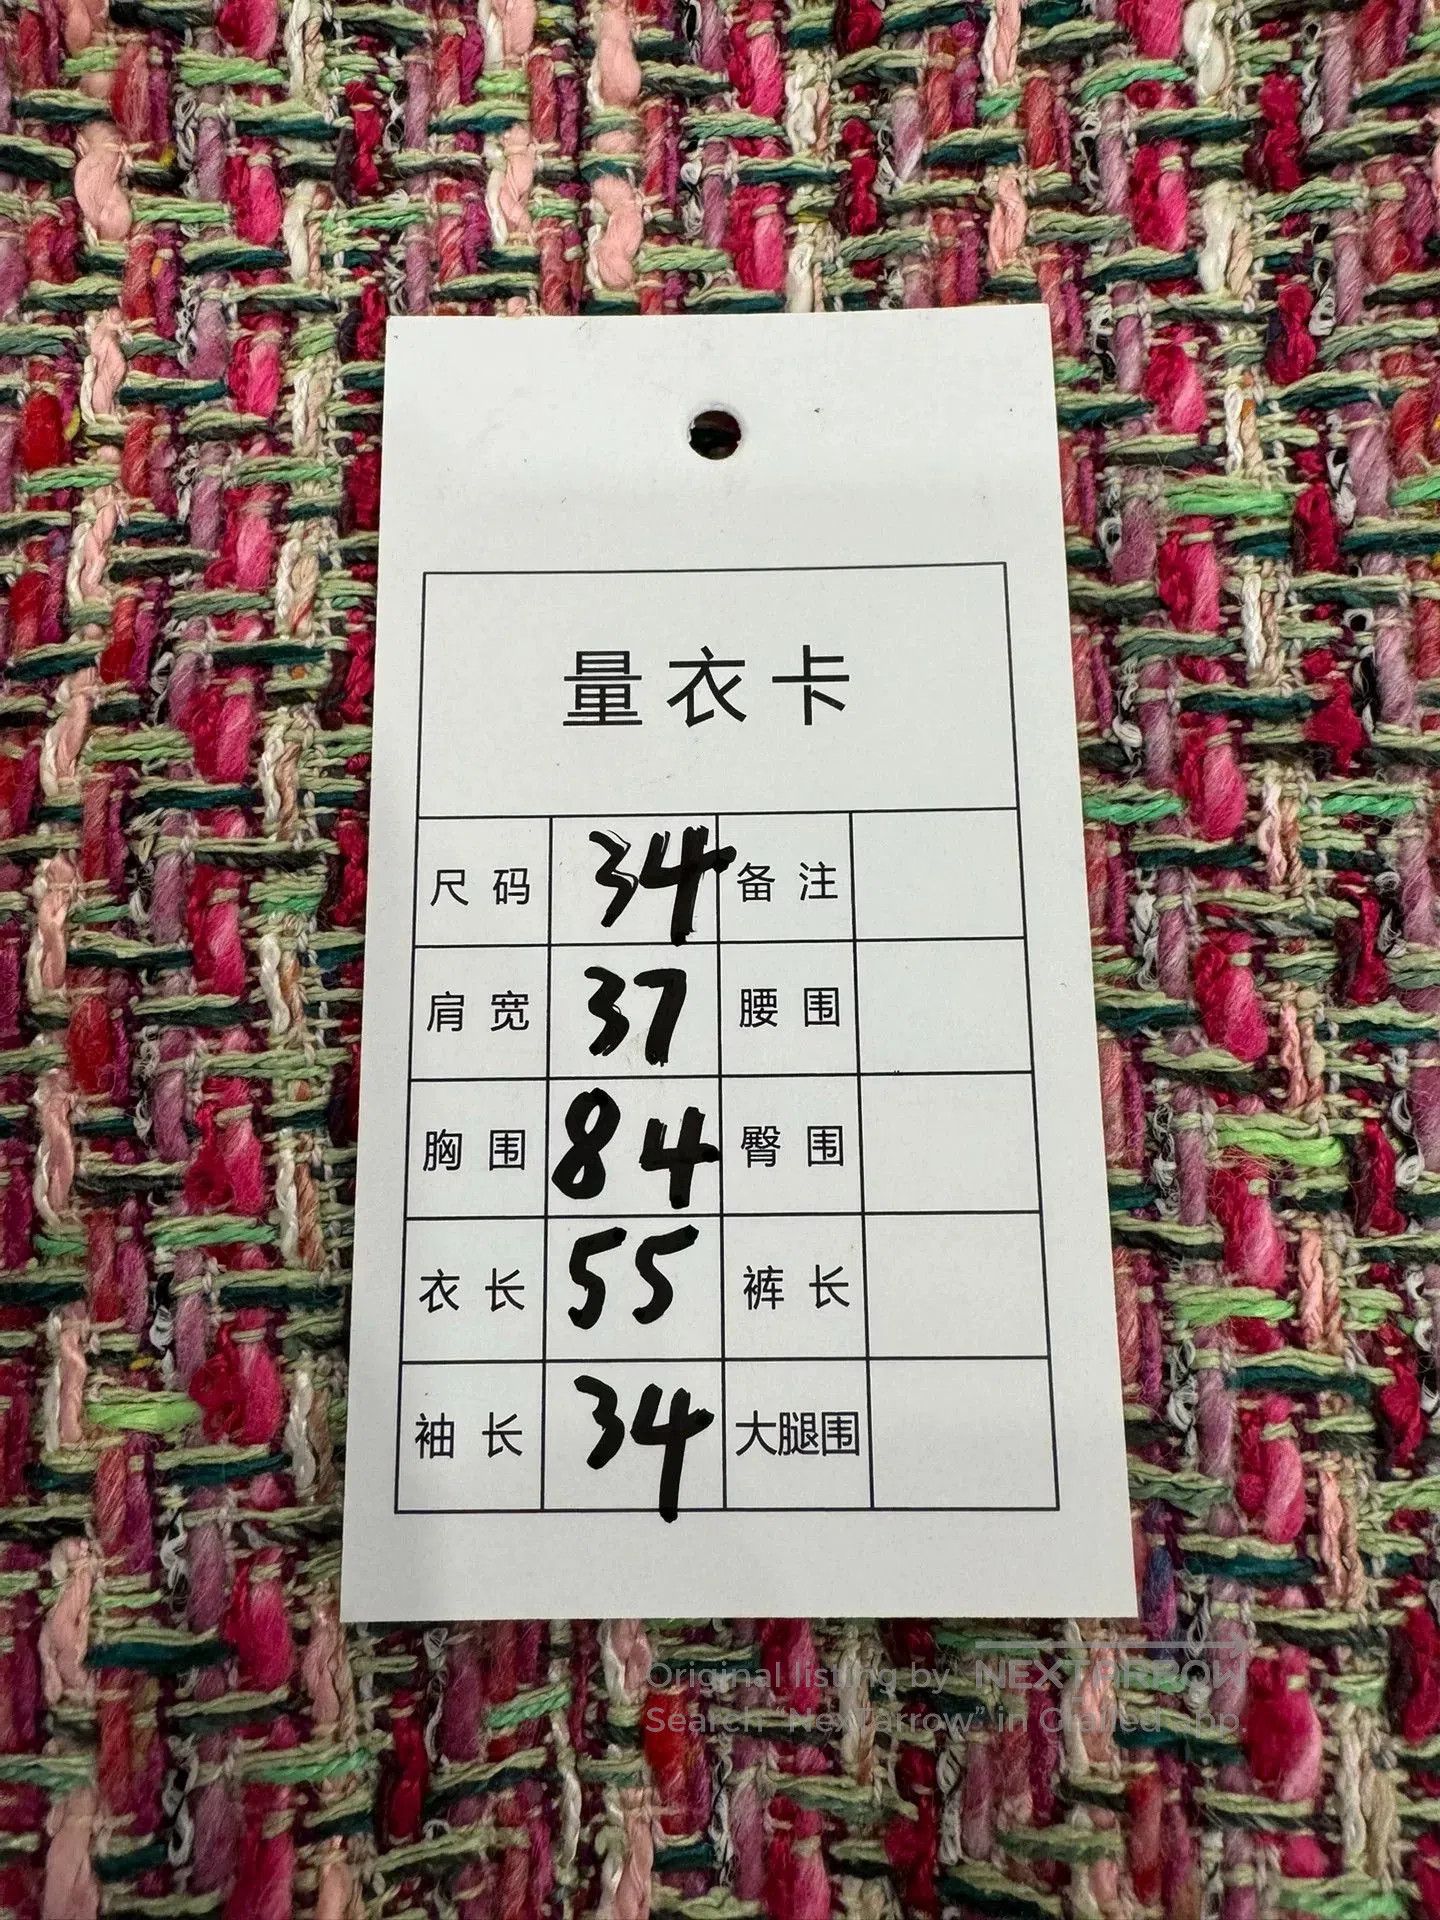 量衣卡
尺码 34 备注
肩宽 37 腰围
胸围 84 臀围
衣长 55 裤长
袖长 34 大腿围
Original listing by NEXTARROW
Search "NexTarrow" in Craiied app.